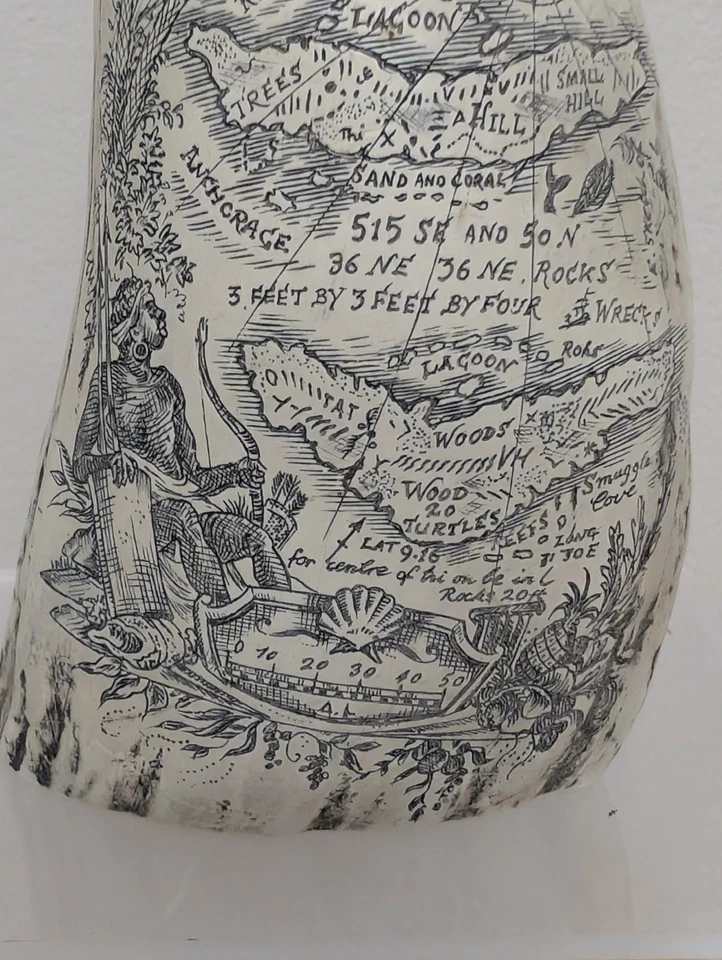 LAGOON
TREES
SMALL
HILL
HILL
Thi X
ANCHORAGE
SAND AND CORAL
515 SE AND 50 N
36 NE 36 NE. ROCKS
3 FEET BY 3 FEET BY FOUR
WRECKS
LAGOON
WOODS
WOOD
20
TURTLES
Smuggle
Cove
LAT 9.16
for centre of
Rocks 20ft
0 10 20 30 40 50